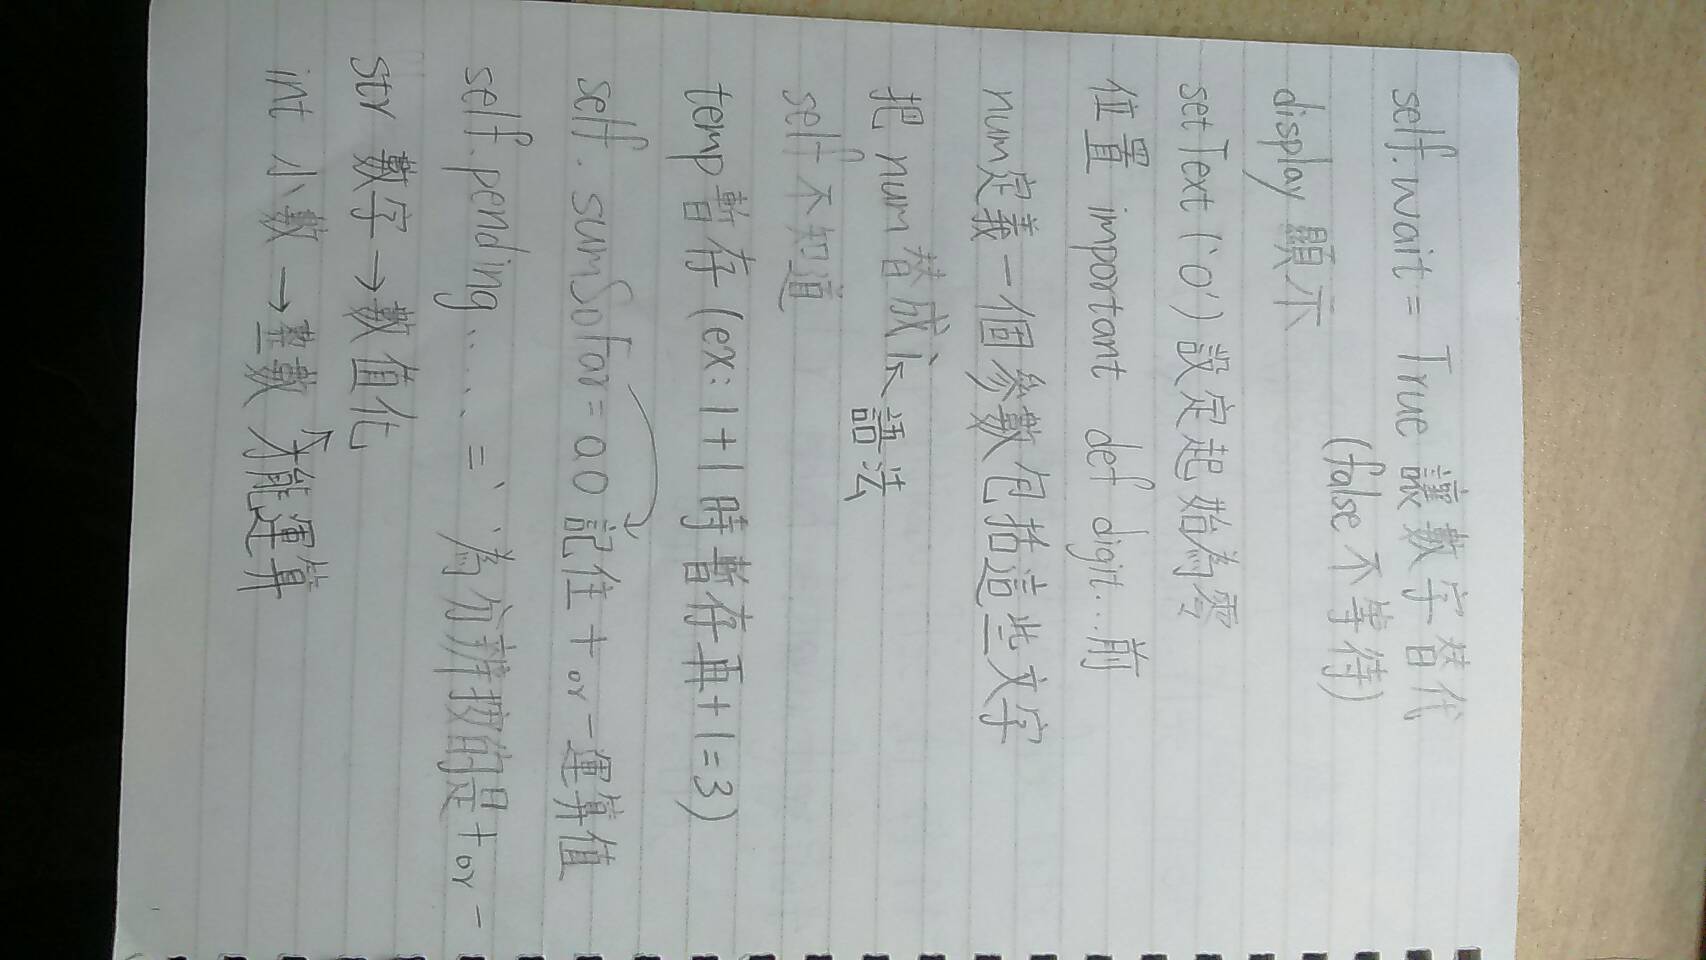 self.wait = True 讓數字替代
(false 不等待)
display 顯示
setText ('0') 設定起始為零
位置 important def digit...前
num定義一個參數包括這些文字
把num替成 ↖ 語法
self 不知道
temp暫存 (ex: 1+1 時暫存再+1=3)
self. sumSofar = 0.0 記住 + or - 運算值
self.pending..... = '' 為分辨按的是 + or -
str 數字→數值化
int 小數→整數 才能運算